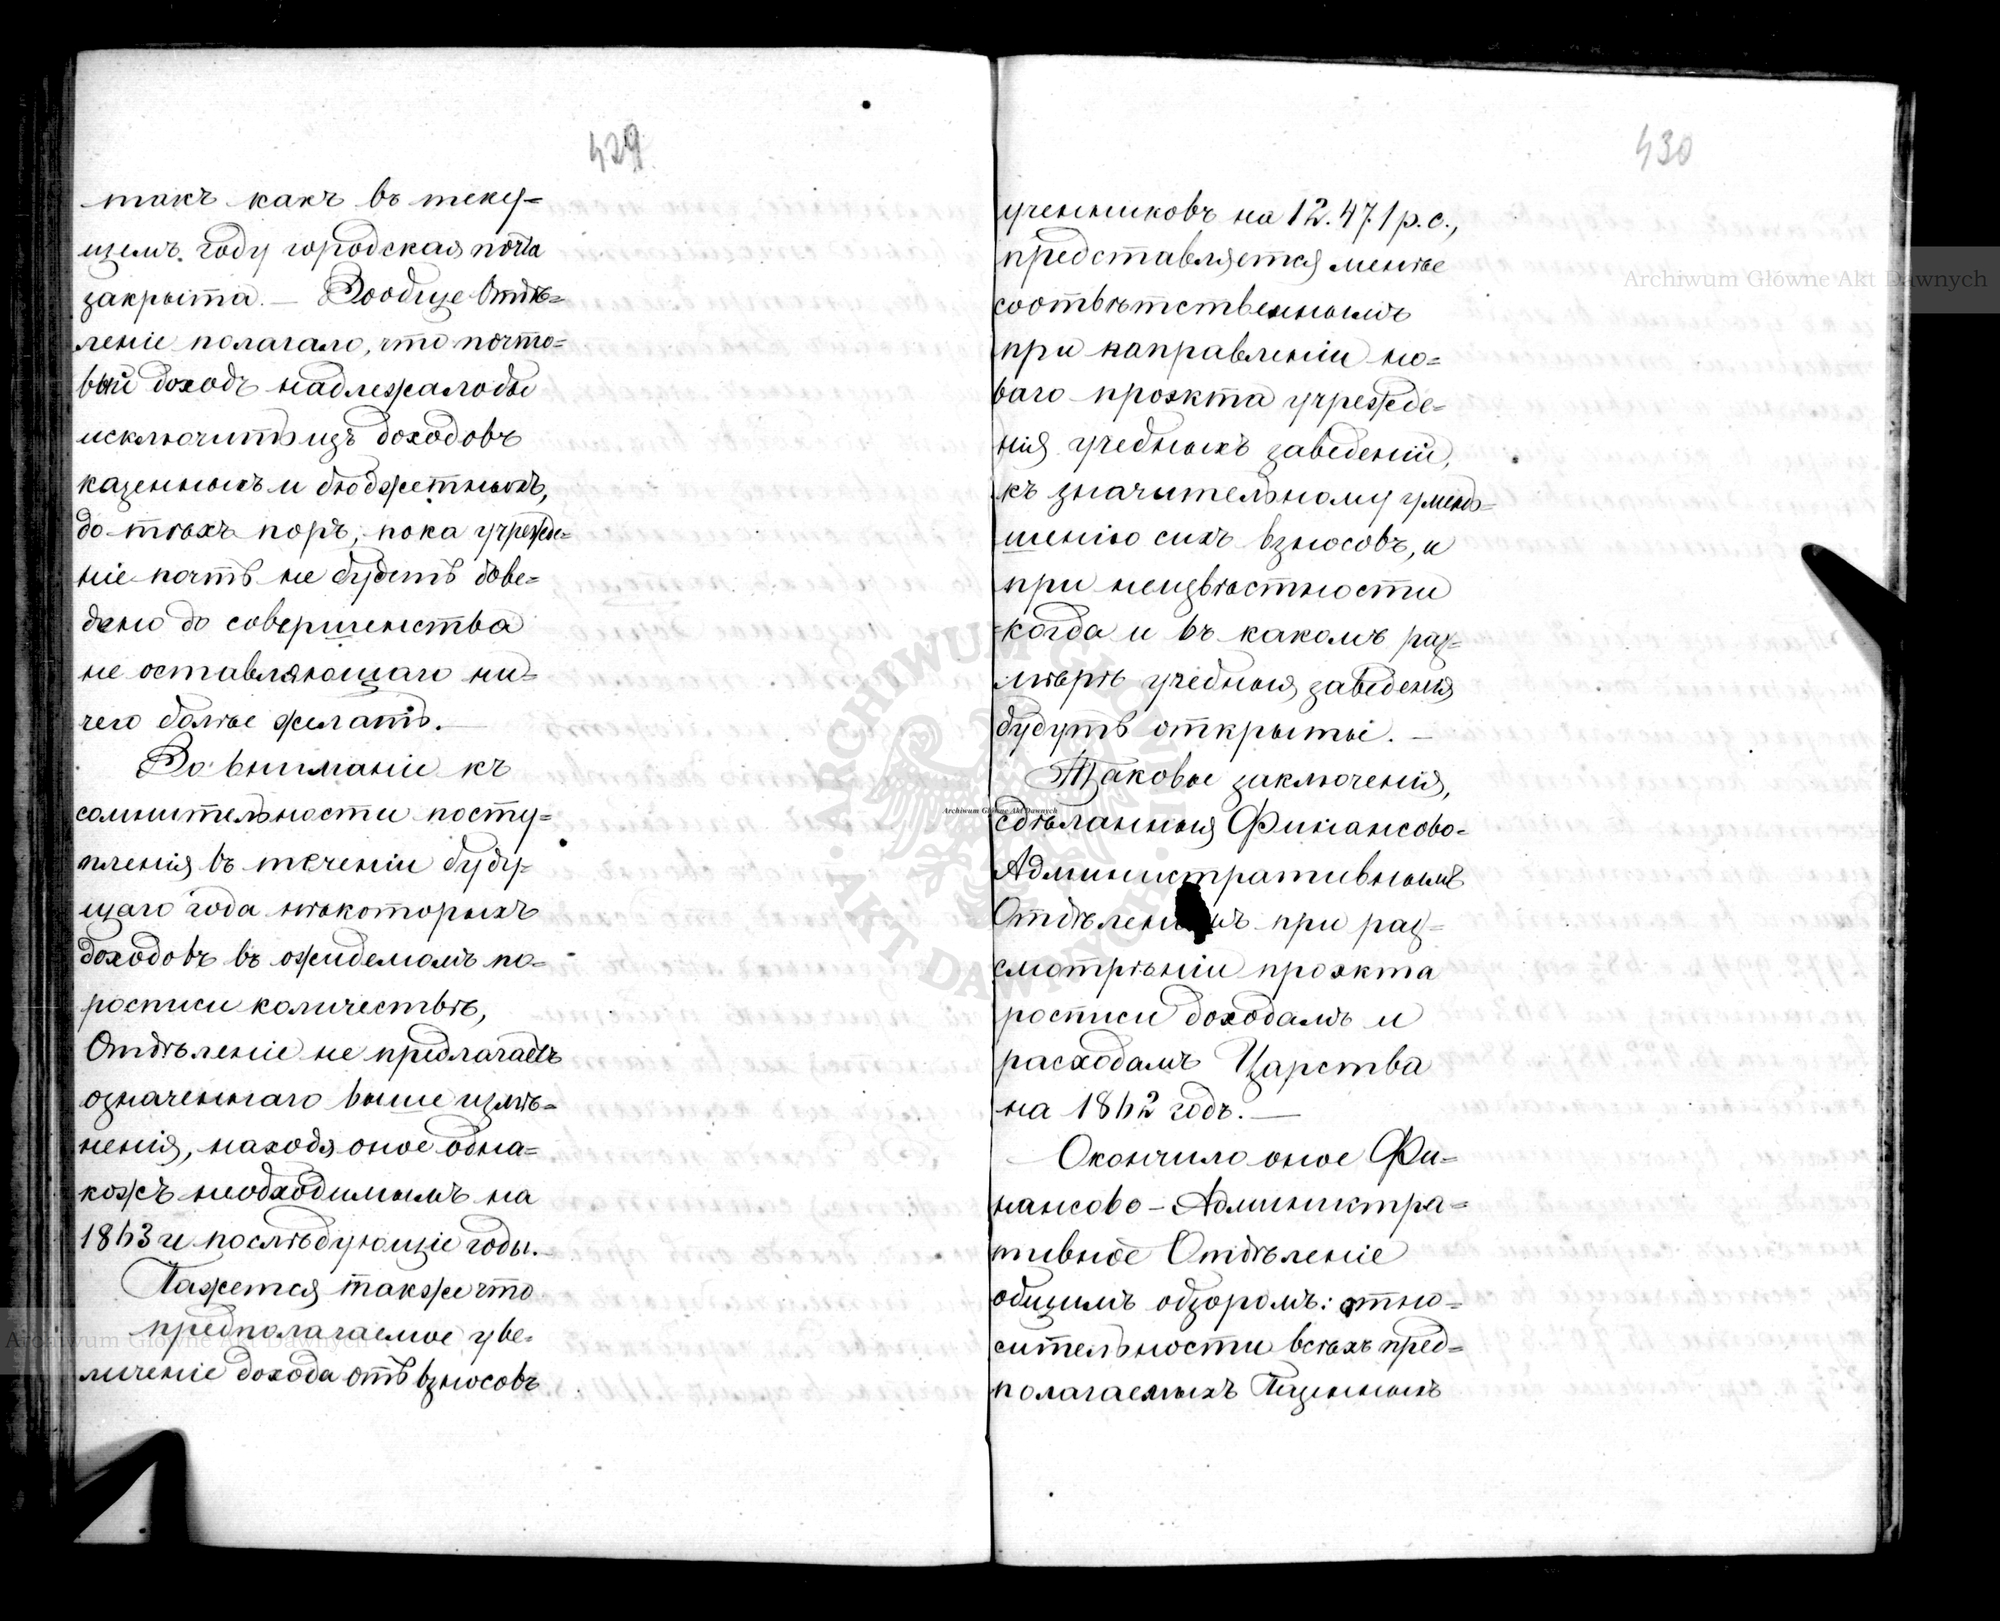 429
такъ какъ въ теку-
щемъ году городская почта
закрыта. — Вообще Отдѣ-
леніе полагало, что почто-
вый доходъ надлежалобы
исключить изъ доходовъ
казенныхъ и бюджетныхъ,
до тѣхъ поръ, пока учрежде-
ніе почтъ не будетъ дове-
дено до совершенства
не оставляющаго ни-
чего болѣе желать. —
Во вниманіе къ
сомнительности посту-
пленія въ теченіи буду-
щаго года нѣкоторыхъ
доходовъ въ ожидемомъ по-
росписи количествѣ,
Отдѣленіе не предлагаетъ
означеннаго выше измѣ-
ненія, находя оное одна-
кожъ необходимымъ на
1863 и послѣдующіе годы. —
Кажется также что
предполагаемое уве-
личеніе дохода отъ взносовъ
430
учениковъ на 12.471 р.с.,
представляется менѣе
соотвѣтственнымъ
при направленіи но-
ваго проэкта учрежде-
нія учебныхъ заведеній,
къ значительному умень-
шенію сихъ взносовъ, и
при неизвѣстности
когда и въ какомъ раз-
мѣрѣ учебныя заведенія
будутъ открыты. —
Таковые заключенія,
сдѣланныя Финансово-
Административнымъ
Отдѣленіемъ при раз-
смотрѣніи проэкта
росписи доходамъ и
расходамъ Царства
на 1862 годъ. —
Окончило оное Фи-
нансово-Администра-
тивное Отдѣленіе
общимъ обзоромъ: отно-
сительности всѣхъ пред-
полагаемыхъ Казенныхъ
Archiwum Główne Akt Dawnych
Archiwum Główne Akt Dawnych
Archiwum Główne Akt Dawnych
ARCHIWUM GŁÓWNE AKT DAWNYCH